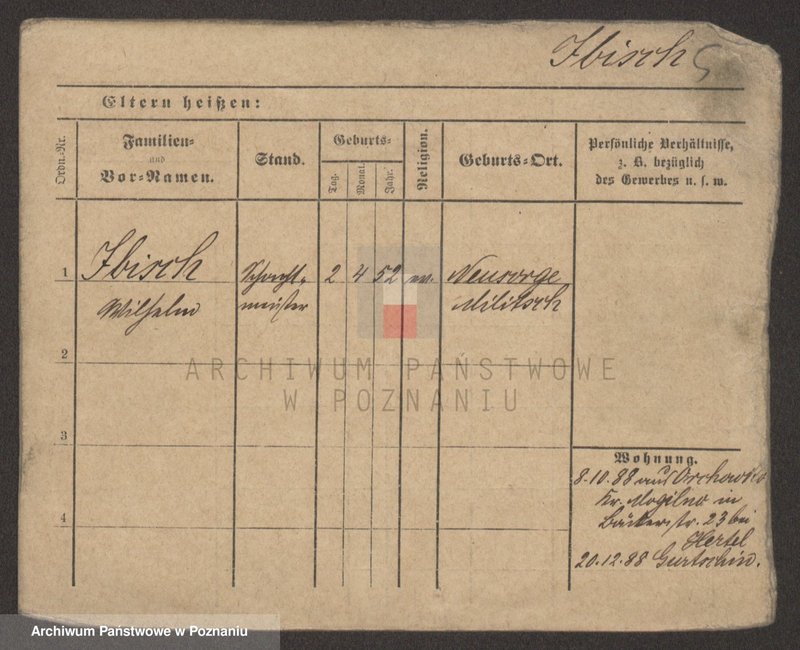 Ibisch
Eltern heißen:
Ordn.-Nr.
Familien-
und
Vor-Namen.
Stand.
Geburts-
Tag.
Monat.
Jahr.
Religion.
Geburts-Ort.
Persönliche Verhältnisse,
z. B. bezüglich
des Gewerbes u. s. w.
1
Ibisch
Wilhelm
Schacht-
meister
2 4 52 ev.
Neusorge
Militsch
2
3
4
Wohnung.
8.10.88 aus Orchowo
Kr. Mogilno in
Bäckerstr. 23 bei
Hertel
20.12.88 Gurtschin.
ARCHIWUM PAŃSTWOWE
W POZNANIU
Archiwum Państwowe w Poznaniu